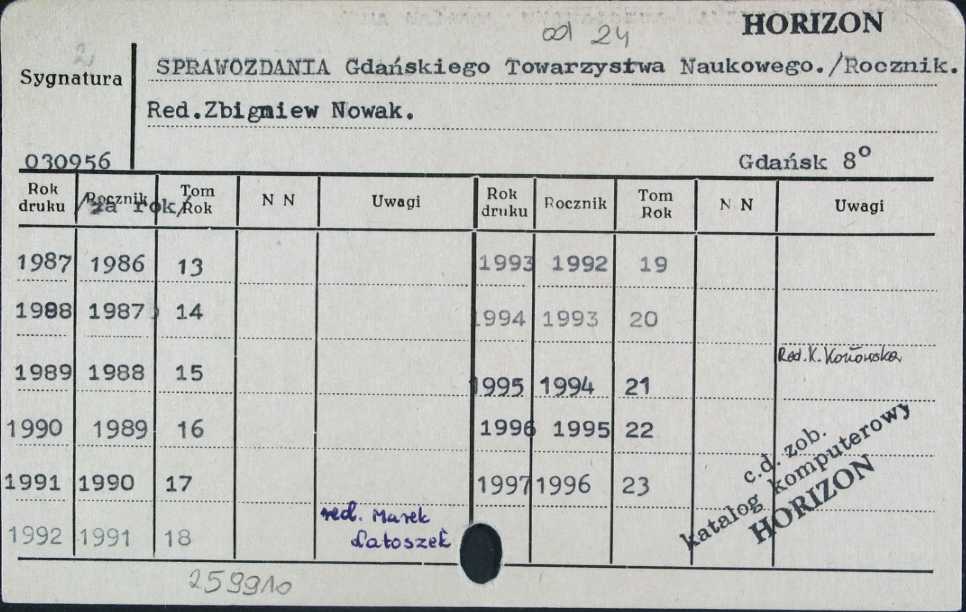 HORIZON
od 24
2
Sygnatura
SPRAWOZDANIA Gdańskiego Towarzystwa Naukowego./Rocznik.
Red.Zbigniew Nowak.
030956
Gdańsk 8°
Rok druku Rocznik /za rok/ Tom Rok N N Uwagi Rok druku Rocznik Tom Rok N N Uwagi
1987 1986 13 1993 1992 19
1988 1987 14 1994 1993 20
1989 1988 15 1995 1994 21 Red. K. Konowska
1990 1989 16 1996 1995 22
1991 1990 17 1997 1996 23
1992 1991 18 red. Marek Latoszek
c.d. zob.
katalog komputerowy
HORIZON
259910